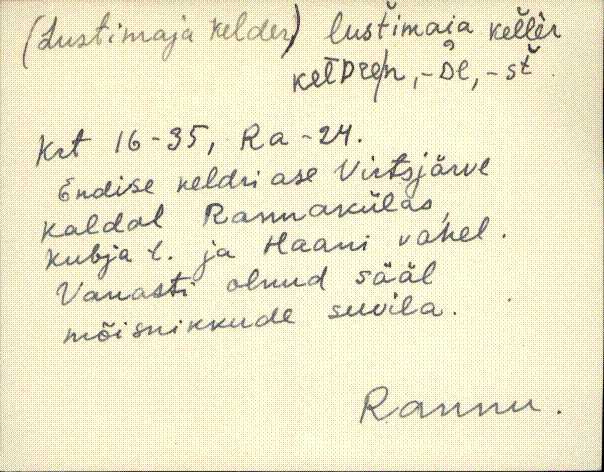 (Lustimaja kelder) lustimaia keller
keldren, -De, -st.
Krt 16-35, Ra-24.
Endise keldri ase Virtsjärve
kaldal Rannakülas,
kubja t. ja Haani vahel.
Vanasti olnud sääl
mõisnikkude suvila.
Rannu.